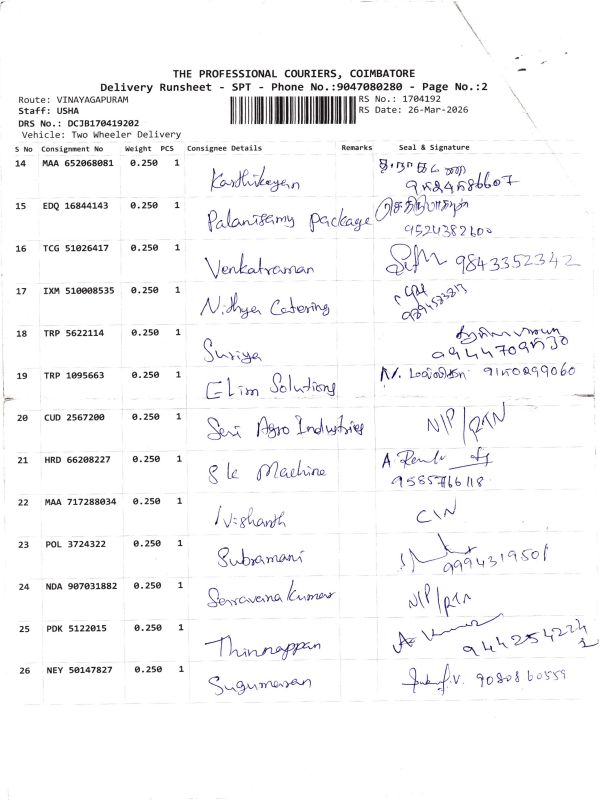 THE PROFESSIONAL COURIERS, COIMBATORE
Delivery Runsheet - SPT - Phone No.:9047080280 - Page No.:2
Route: VINAYAGAPURAM
RS No.: 1704192
Staff: USHA
RS Date: 26-Mar-2026
DRS No.: DCJB170419202
Vehicle: Two Wheeler Delivery
S No Consignment No Weight PCS Consignee Details Remarks Seal & Signature
14 MAA 652068081 0.250 1
Karthikeyan
15 EDQ 16844143 0.250 1
Palanisamy package
9524382600
16 TCG 51026417 0.250 1
Venkatraman 9843352342
17 IXM 510008535 0.250 1
Nithya Catering
18 TRP 5622114 0.250 1
Suriya 9944709530
19 TRP 1095663 0.250 1
Elim Solutions 9150299060
20 CUD 2567200 0.250 1
Seri Agro Industries N/P/RTN
21 HRD 66208227 0.250 1
S k Machine
9585766118
22 MAA 717288034 0.250 1
Nishanth C/N
23 POL 3724322 0.250 1
Subramani 9994319501
24 NDA 907031882 0.250 1
Saravana Kumar N/P/RTN
25 PDK 5122015 0.250 1
Thinnappan 9442542242
26 NEY 50147827 0.250 1
Sugumaran 9080860559